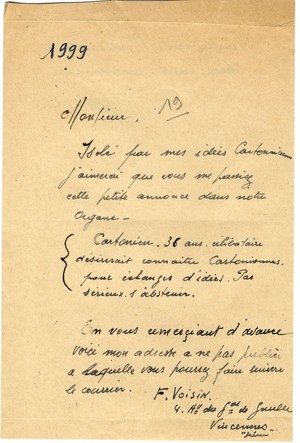 1999
19
Monsieur.
Isolé par mes idées
j'aimerai que vous me passiez
cette petite annonce dans notre
Organe —
36 ans. célibataire
désirerait connaître
pour échanges d'idées. Pas
sérieux s'abstenir.
En vous remerciant d'avance
voici mon adresse a ne pas publier
a laquelle vous pourrez faire suivre
le courrier. F. Voisin
4. de Gaulle
Vincennes